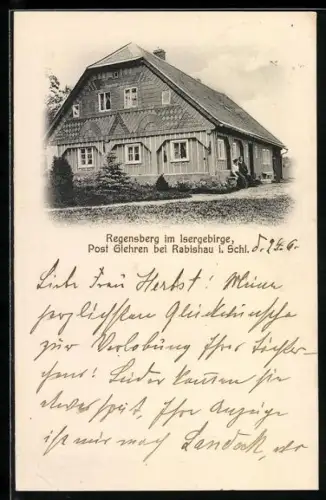 Regensberg im Isergebirge,
Post Giehren bei Rabishau i. Schl. d. 24.6.
Liebe Frau Herbst! Meine
herzlichsten Glückwünsche
zur Verlobung Ihres Töchter-
chens! Leider kommen sie
etwas spät, Ihre Anzeige
ist mir nach Landeck, wo